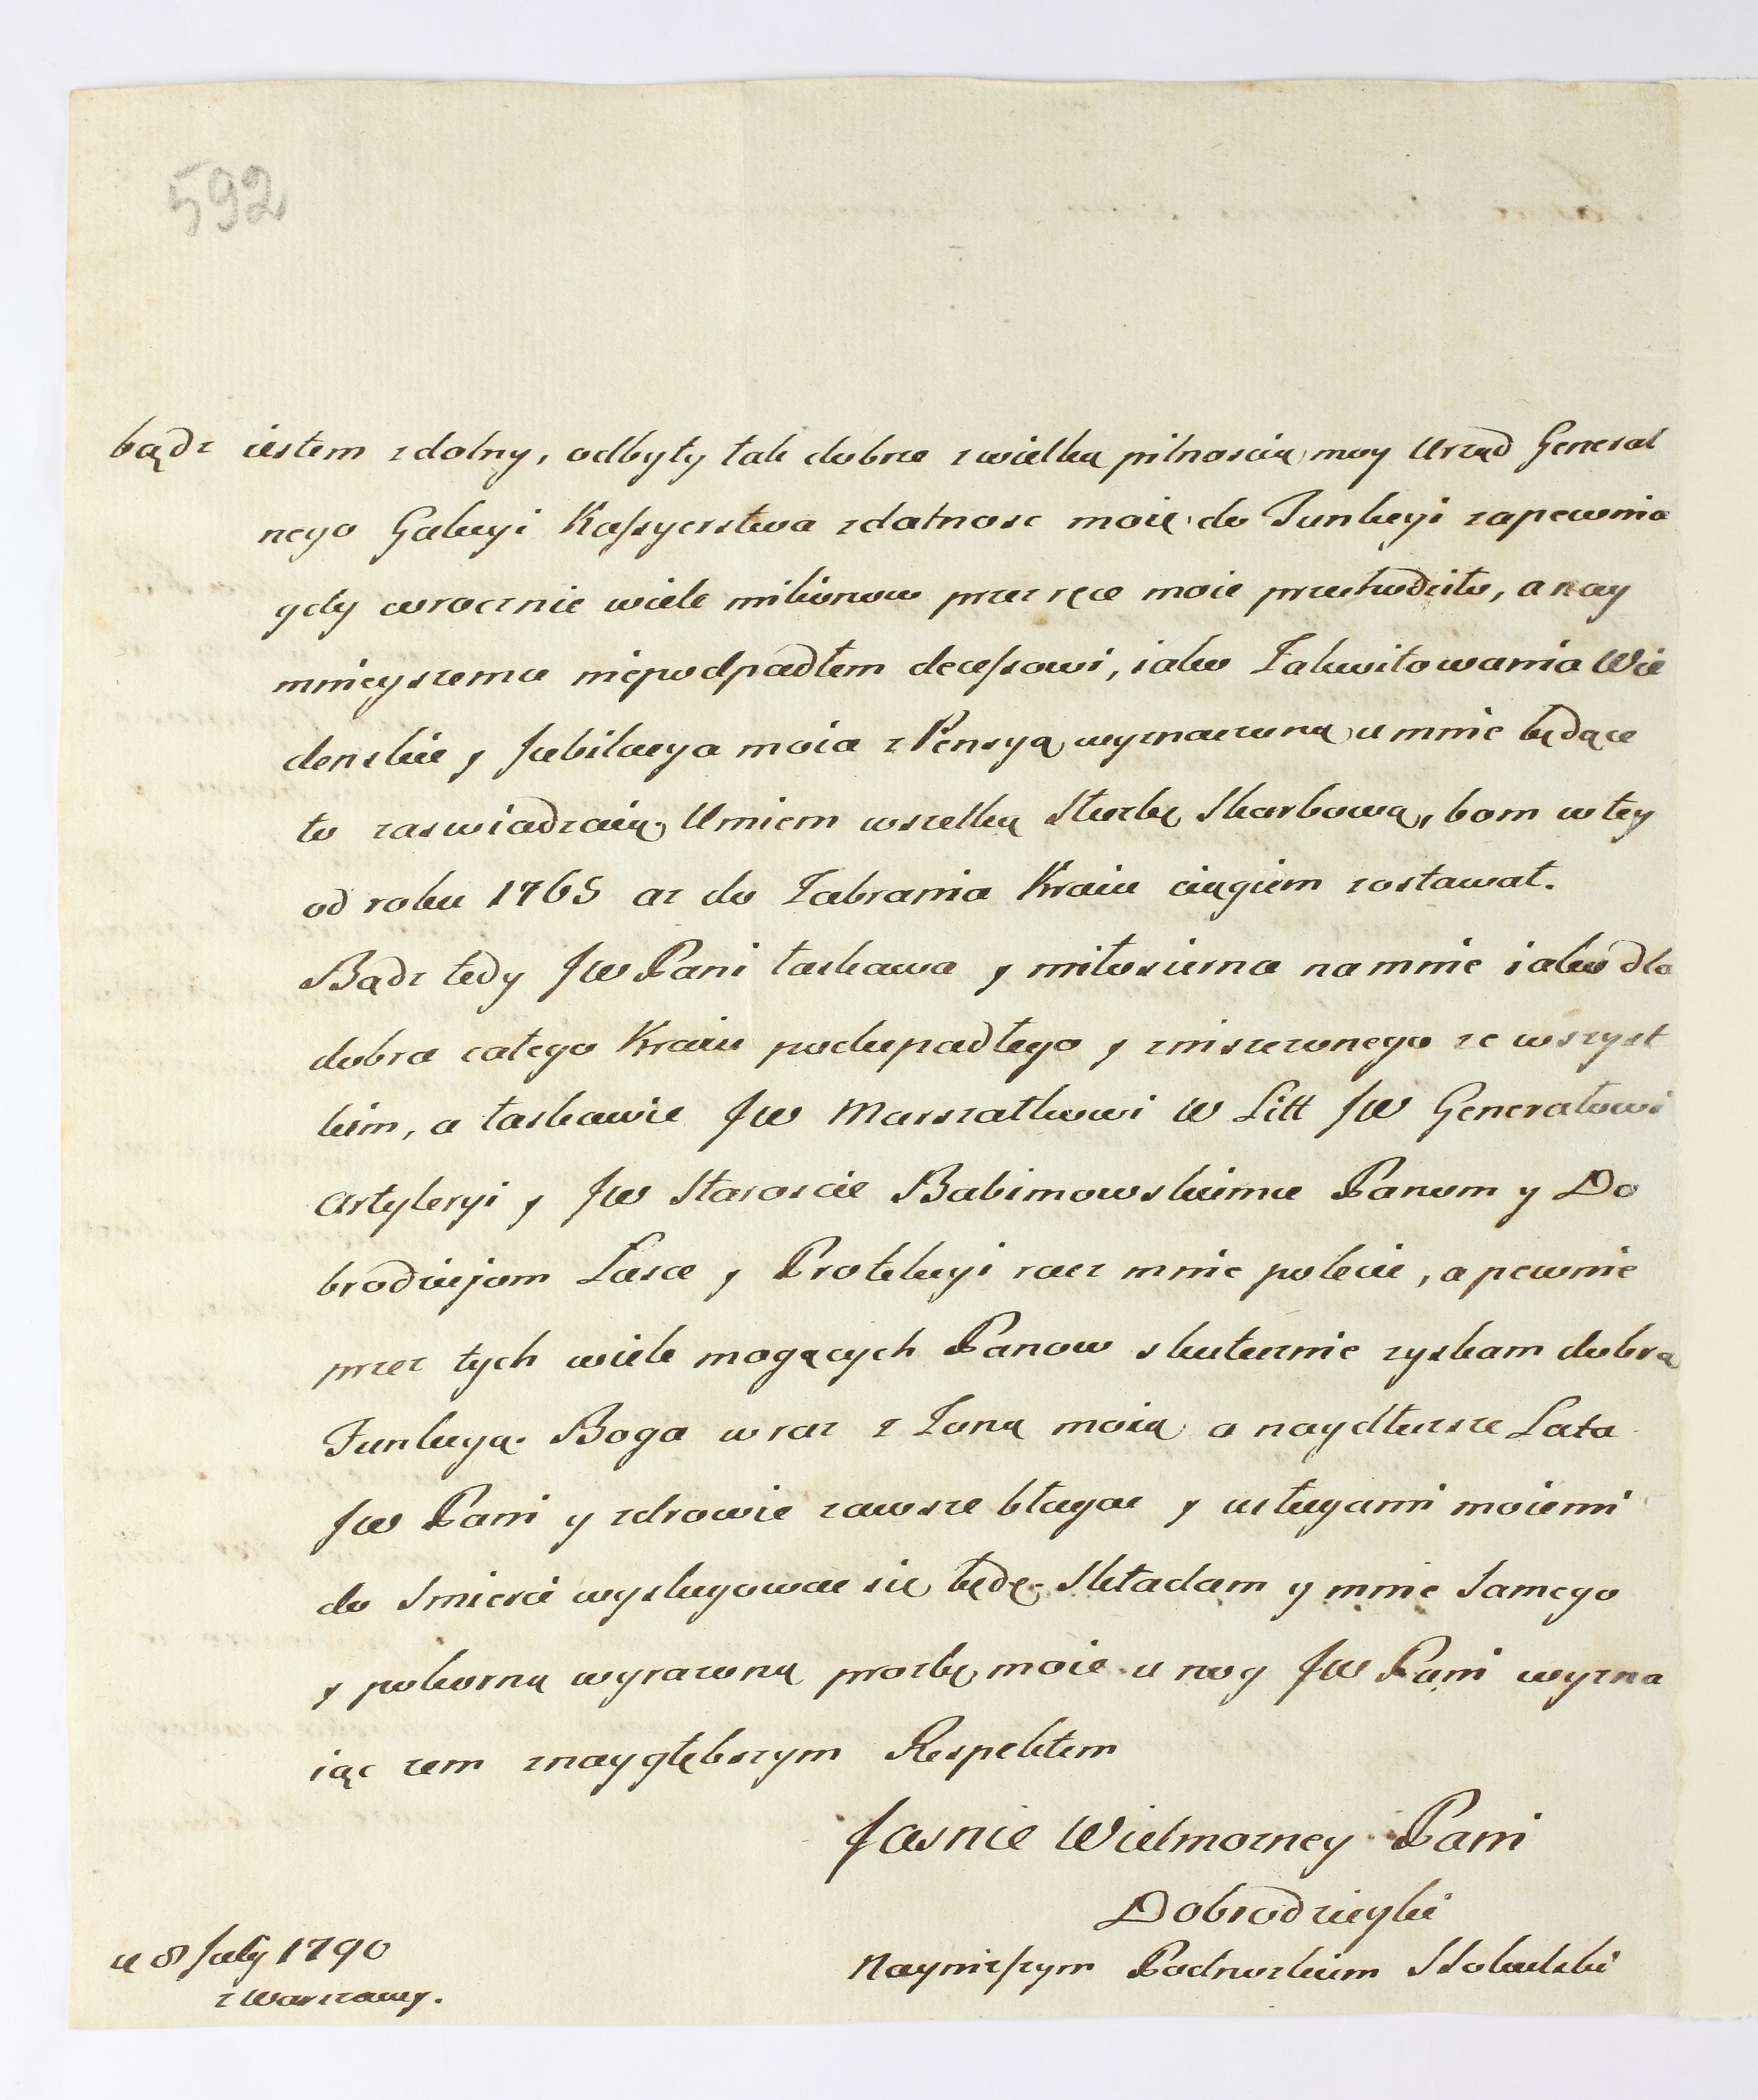 592
bądz iestem zdolny, odbyły tak dobrze z wielką pilnoscią moy Urząd General
nego Galicyi Kassyerstwa zdatnosc moię do Funkcyi zapewnia
gdy corocznie wiele milionow przez ręce moie przechodziło, a nay
mnieyszemu niepodpadłem decessowi, iako Zakwitowania Wie
denskie y Jubilacya moia z Pensyą wyznaczoną u mnie będące
to zaswiadzaią. Umiem wszelką Służbę Skarbową, bom w tey
od roku 1765 az do Zabrania Kraiu ciągiem zostawał.
Bądz tedy JW Pani łaskawa y miłosierna na mnie iako dla
dobra całego Kraiu podupadłego y zniszczonego ze wszyst
kim, a łaskawie JW Marszałkowi W Litt JW Generałowi
Artyleryi y JW Staroscie Babimowskiemu Panom y Do
brodziejom Łasce y Protekcyi racz mnie polecic, a pewnie
przez tych wiele mogących Panow skutecznie zyskam dobrą
Funkcyą. Boga w raz z Zoną moią o naydłuzsze Lata
JW Pani y zdrowie zawsze błagac y usługami moiemi
do Smierci wysługowac się będę. Składam y mnie Samego
y pokorną wyrazoną prozbę moie u nog JW Pani wyzna
iąc zem z naygłębszym Respektem
Jasnie Wielmozney Pani
Dobrodzieyki
Nayniższym Podnozkiem
u 8 July 1790
z Warszawy.